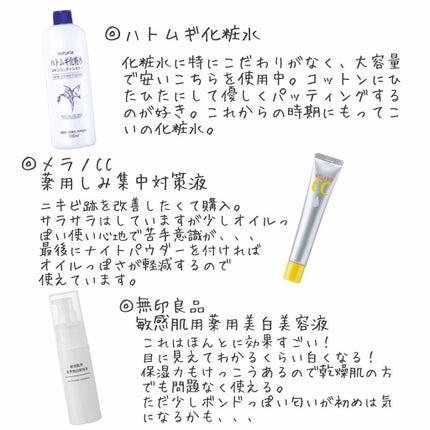 ◎ハトムギ化粧水
化粧水に特にこだわりがなく、大容量
で安いこちらを使用中。コットンにひ
たひたにして優しくパッティングする
のが好き。これからの時期にもってこ
いの化粧水。
naturie
ハトムギ化粧水
◎メラノCC
薬用しみ集中対策液
ニキビ跡を改善したくて購入。
サラサラはしていますが少しオイルっ
ぽい使い心地で苦手意識が、、、
最後にナイトパウダーを付ければ
オイルっぽさが軽減するので
使えています。
CC
◎無印良品
敏感肌用薬用美白美容液
これはほんとに効果すごい!
目に見えてわかるくらい白くなる!
保湿力もけっこうあるので乾燥肌の方
でも問題なく使える。
ただ少しボンドっぽい匂いが初めは気
になるかも、、、